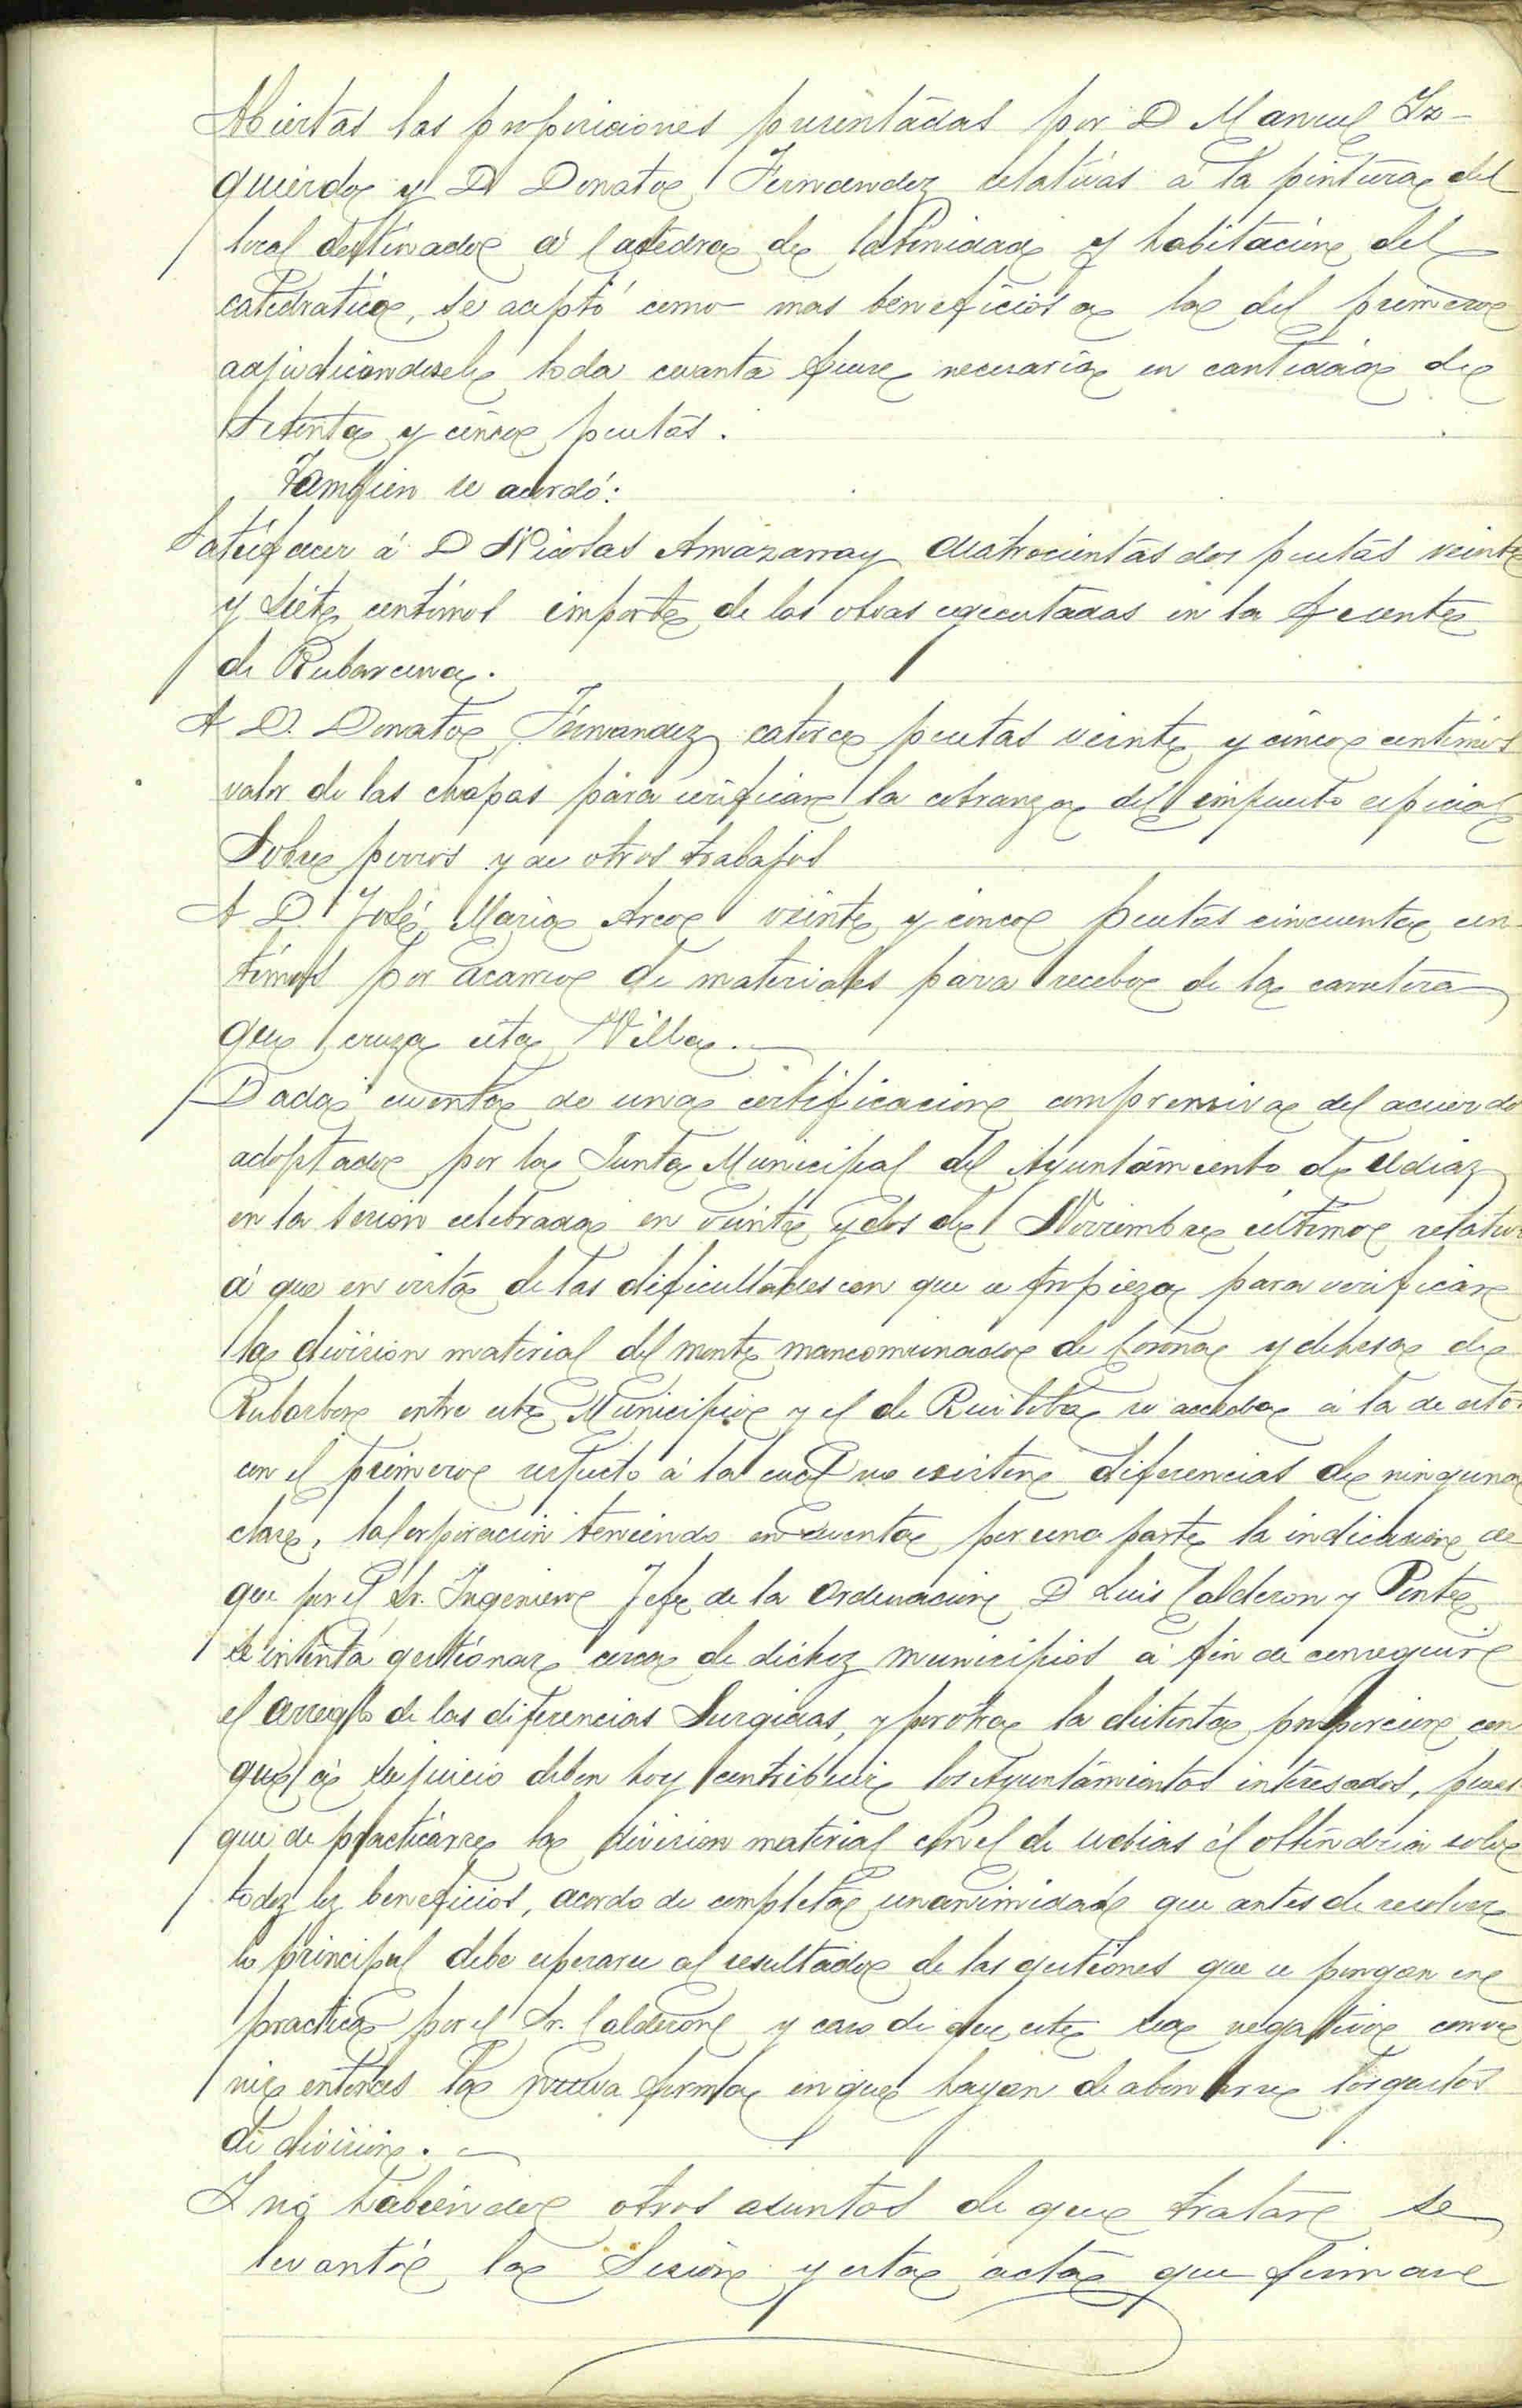 Abiertas las proposiciones presentadas por D Manuel Iz-
quierdo y D Donato Fernandez relativas a la pintura del
local destinado á Catedra de latinidad y habitacion del
catedratico, se aceptó como mas beneficiosa la del primero
adjudicandosele toda cuanta fuere necesaria en cantidad de
setenta y cinco pesetas.
Tambien se acordó:
Satisfacer á D Nicolas Amazarray cuatrocientas dos pesetas veinte
y siete centimos importe de las obras ejecutadas en la fuente
de Rubarcena.
A D. Donato Fernandez catorce pesetas veinte y cinco centimos
valor de las chapas para verificar la cobranza del impuesto especial
sobre perros y de otros trabajos
A D. José Maria Arco veinte y cinco pesetas cincuenta cen-
timos por acarreo de materiales para recebo de la carretera
que cruza esta Villa.
Dada cuenta de una certificacion comprensiva del acuerdo
adoptado por la Junta Municipal del Ayuntamiento de Udiaz
en la sesion celebrada en veinte y dos de Noviembre último relativo
á que en vista de las dificultades con que se tropieza para verificar
la division material del monte mancomunado de Corona y dehesa de
entre este Municipio y el de Ruiloba se acceda á la de estos
con el primero respecto á la cual no existen diferencias de ninguna
clase, la Corporacion teniendo en cuenta por una parte la indicacion de
que por el Sr. Ingeniero Jefe de la Ordenacion D Luis Calderon y Ponte
se intenta gestionar cerca de dichoz municipios á fin de conseguir
el arreglo de las diferencias surgidas, y por otra la distinta proporcion con
que á su juicio deben hoy contribuir los Ayuntamientos interesados, pues
que de practicarse la division material con el de Udias él obtendria solo
todoz loz beneficios, acordo de completa unanimidad que antes de resolver
lo principal debe esperarse al resultado de las gestiones que se pongan en
practica por el Sr. Calderon y caso de que este sea negativo conve
nir entonces la nueva forma en que hayan de abonarse los gastos
de division.
Y no habiendo otros asuntos de que tratar se
levantó la Sesion y esta acta que firman